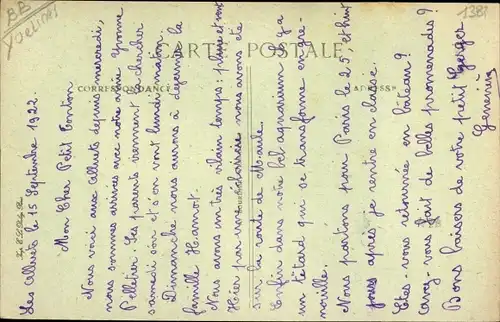 BB
YVELINES
1381
CARTE POSTALE
CORRESPONDANCE
ADRESSE
Les Alluets le 15 Septembre 1922.
Mon Cher Petit Tonton
Nous voici aux Alluets depuis mercredi,
nous sommes arrivés avec notre amie Yvonne
Pelletier Ses parents viennent la chercher
samedi soir et s'en vont lundi matin.
Dimanche nous aurons à déjeuner la
famille Hamot.
Nous avons un très vilain temps, pluie et vent
Hier par une nous avons été
sur la route de Maule.
Enfin dans notre bel aquarium il y a
un têtard qui se transforme en gre-
nouille.
Nous partons pour Paris le 25, et huit
jours après je rentre en classe.
Etes-vous retournée en bâteau?
Avez-vous fait de belles promenades?
Bons baisers de votre petit